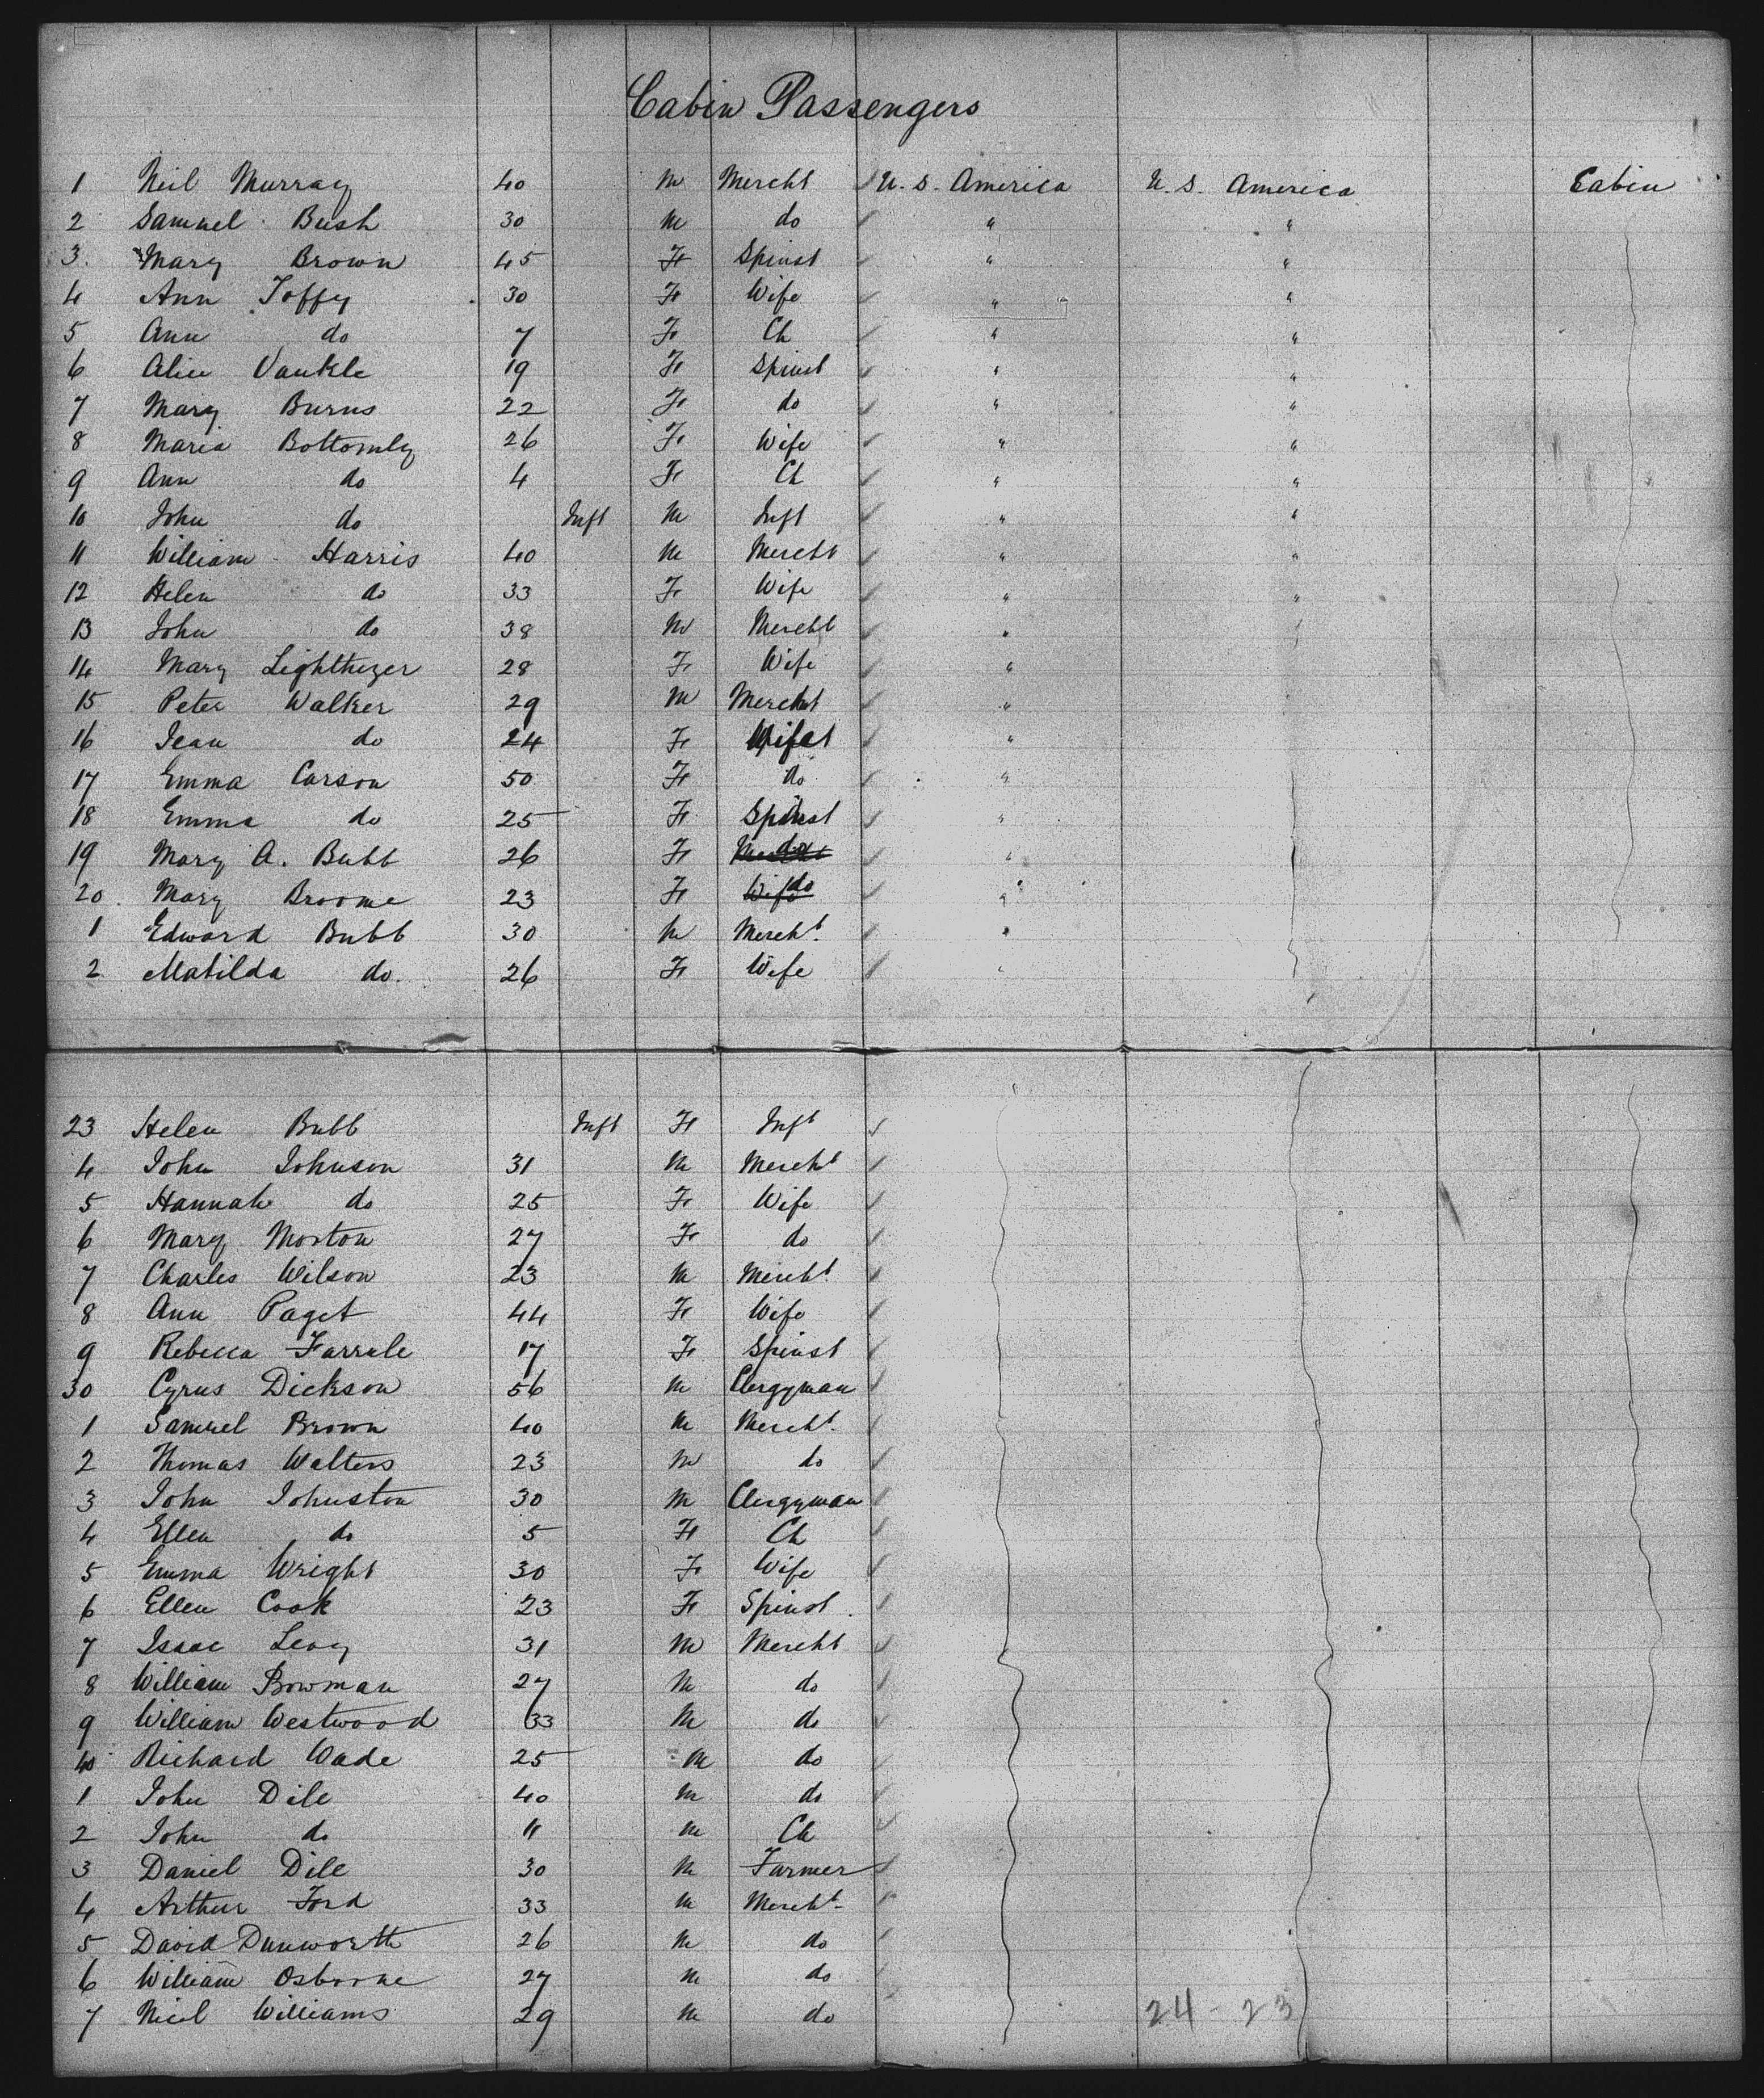 Cabin Passengers
1 Neil Murray 40 M Mercht U. S. America U. S. America Cabin
2 Samuel Bush 30 M do " "
3. Mary Brown 45 F Spinst " "
4 Ann Joffy 30 F Wife " "
5 Ann do 7 F Ch " "
6 Alice Vankle 19 F Spinst " "
7 Mary Burns 22 F do " "
8 Maria Bottomly 26 F Wife " "
9 Ann do 4 F Ch " "
10 John do Inft M Inft " "
11 William Harris 40 M Mercht " "
12 Helen do 33 F Wife " "
13 John do 38 M Mercht "
14 Mary Lighthizer 28 F Wife "
15 Peter Walker 29 M Mercht "
16 Jean do 24 F Wife "
17 Emma Carson 50 F do "
18 Emma do 25 F Spinst "
19 Mary A. Bubb 26 F do "
20. Mary Broome 23 F do "
1 Edward Bubb 30 M Mercht. "
2 Matilda do. 26 F Wife "
23 Helen Bubb Inft F Inft
4 John Johnson 31 M Mercht
5 Hannah do 25 F Wife
6 Mary Morton 27 F do
7 Charles Wilson 23 M Mercht.
8 Ann Paget 44 F Wife
9 Rebecca Farrale 17 F Spinst
30 Cyrus Dickson 56 M Clergyman
1 Samuel Brown 40 M Mercht.
2 Thomas Walters 23 M do
3 John Johnston 30 M Clergyman
4 Ellen do 5 F Ch
5 Emma Wright 30 F Wife
6 Ellen Cook 23 F Spinst.
7 Isaac Levy 31 M Mercht
8 William Bowman 27 M do
9 William Westwood 33 M do
40 Richard Wade 25 M do
1 John Dile 40 M do
2 John do 11 M Ch
3 Daniel Dile 30 M Farmer
4 Arthur Ford 33 M Mercht.
5 David Dunworth 26 M do
6 William Osborne 27 M do
7 Nicol Williams 29 M do
24 - 23